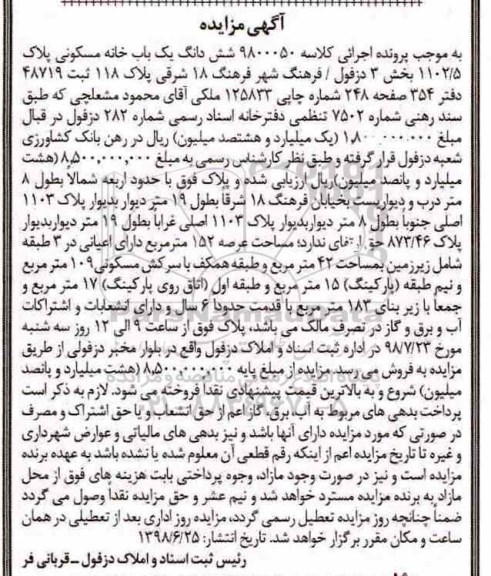 آگهی مزایده
به موجب پرونده اجرائی کلاسه ۹۸۰۰۰۵۰ شش دانگ یک باب خانه مسکونی پلاک
۱۱۰۲/۵ بخش ۳ دزفول / فرهنگ شهر فرهنگ ۱۸ شرقی پلاک ۱۱۸ ثبت ۴۸۷۱۹
دفتر ۳۵۴ صفحه ۲۴۸ شماره چاپی ۱۲۵۸۳۳ ملکی آقای محمود مشعلچی که طبق
سند رهنی شماره ۷۵۰۲ تنظمی دفترخانه اسناد رسمی شماره ۲۸۲ دزفول در قبال
مبلغ ۱,۸۰۰,۰۰۰,۰۰۰ (یک میلیارد و هشتصد میلیون) ریال در رهن بانک کشاورزی
شعبه دزفول قرار گرفته و طبق نظر کارشناس رسمی به مبلغ ۸,۵۰۰,۰۰۰,۰۰۰ (هشت
میلیارد و پانصد میلیون) ریال ارزیابی شده و پلاک فوق با حدود اربعه شمالا بطول ۸
متر درب و دیواریست بخیابان فرهنگ ۱۸ شرقاً بطول ۱۹ متر دیوار بدیوار پلاک ۱۱۰۳
اصلی جنوبا بطول ۸ متر دیواربدیوار پلاک ۱۱۰۳ اصلی غرباً بطول ۱۹ متر دیواربدیوار
پلاک ۸۷۳/۴۶ حق ارتفاقی ندارد؛ مساحت عرصه ۱۵۲ مترمربع دارای اعیانی در ۳ طبقه
شامل زیرزمین بمساحت ۴۲ متر مربع و طبقه همکف با سرکش مسکونی ۱۰۹ متر مربع
و نیم طبقه (پارکینگ) ۱۵ متر مربع و طبقه اول (اتاق روی پارکینگ) ۱۷ متر مربع و
جمعا با زیر بنای ۱۸۳ متر مربع با قدمت حدودا ۶ سال و دارای انشعابات و اشتراکات
آب و برق و گاز در تصرف مالک می باشد، پلاک فوق از ساعت ۹ الی ۱۲ روز سه شنبه
مورخ ۹۸/۷/۲۳ در اداره ثبت اسناد و املاک دزفول واقع در بلوار مخبر دزفولی از طریق
مزایده به فروش می رسد. مزایده از مبلغ پایه ۸,۵۰۰,۰۰۰,۰۰۰ (هشت میلیارد و پانصد
میلیون) شروع و به بالاترین قیمت پیشنهادی نقدا فروخته می شود. لازم به ذکر است
پرداخت بدهی های مربوط به آب، برق، گاز اعم از حق انشعاب و یا حق اشتراک و مصرف
در صورتی که مورد مزایده دارای آنها باشد و نیز بدهی های مالیاتی و عوارض شهرداری
و غیره تا تاریخ مزایده اعم از اینکه رقم قطعی آن معلوم شده یا نشده باشد به عهده برنده
مزایده است و نیز در صورت وجود مازاد، وجوه پرداختی بابت هزینه های فوق از محل
مازاد به برنده مزایده مسترد خواهد شد و نیم عشر و حق مزایده نقدا وصول می گردد
ضمناً چنانچه روز مزایده تعطیل رسمی گردد، مزایده روز اداری بعد از تعطیلی در همان
ساعت و مکان مقرر برگزار خواهد شد. تاریخ انتشار: ۱۳۹۸/۶/۲۵
رئیس ثبت اسناد و املاک دزفول ــ قربانی فر